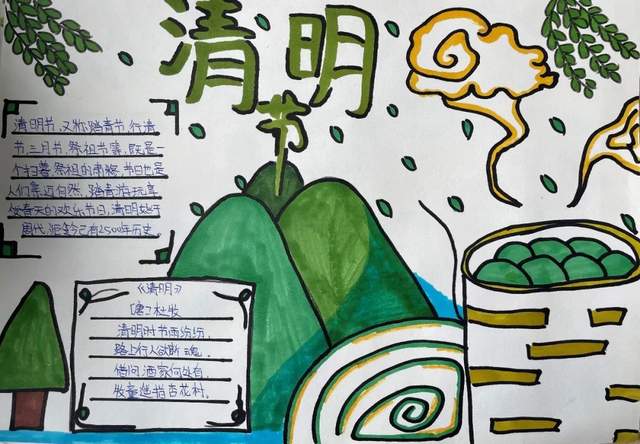 清明
节
清明节,又称踏青节,行清
节,三月节,祭祖节等,既是一
个扫墓祭祖的肃穆节日也是
人们亲近自然、踏青游玩享
受春天的欢乐节日,清明始于
周代,距今已有2500年历史。
《清明》
[唐]杜牧
清明时节雨纷纷,
路上行人欲断魂。
借问酒家何处有,
牧童遥指杏花村。